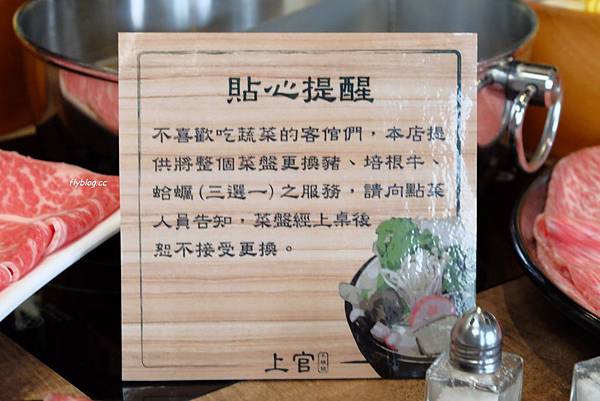 貼心提醒
不喜歡吃蔬菜的客倌們，本店提
供將整個菜盤更換豬、培根牛、
蛤蠣(三選一)之服務，請向點菜
人員告知，菜盤經上桌後
恕不接受更換。
flyblog.cc
上官